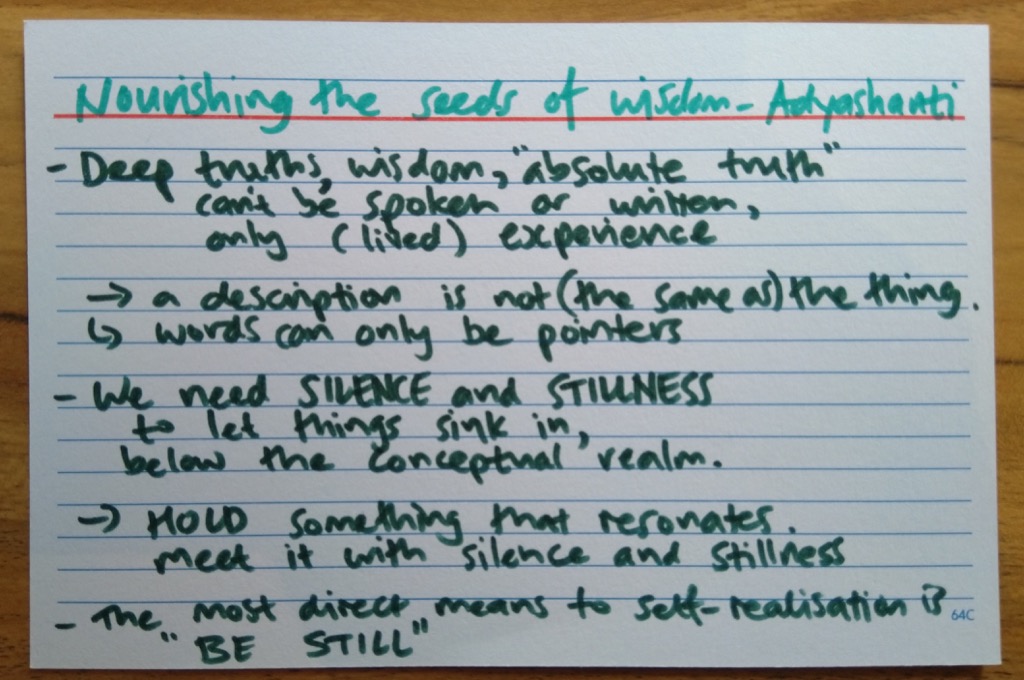 Nourishing the seeds of wisdom - Adyashanti
- Deep truths, wisdom, "absolute truth"
can't be spoken or written,
only (lived) experience
→ a description is not (the same as) the thing.
↳ words can only be pointers
- We need SILENCE and STILLNESS
to let things sink in,
below the conceptual realm.
→ HOLD something that resonates.
meet it with silence and stillness
- The most direct means to self-realisation is
"BE STILL"
64C